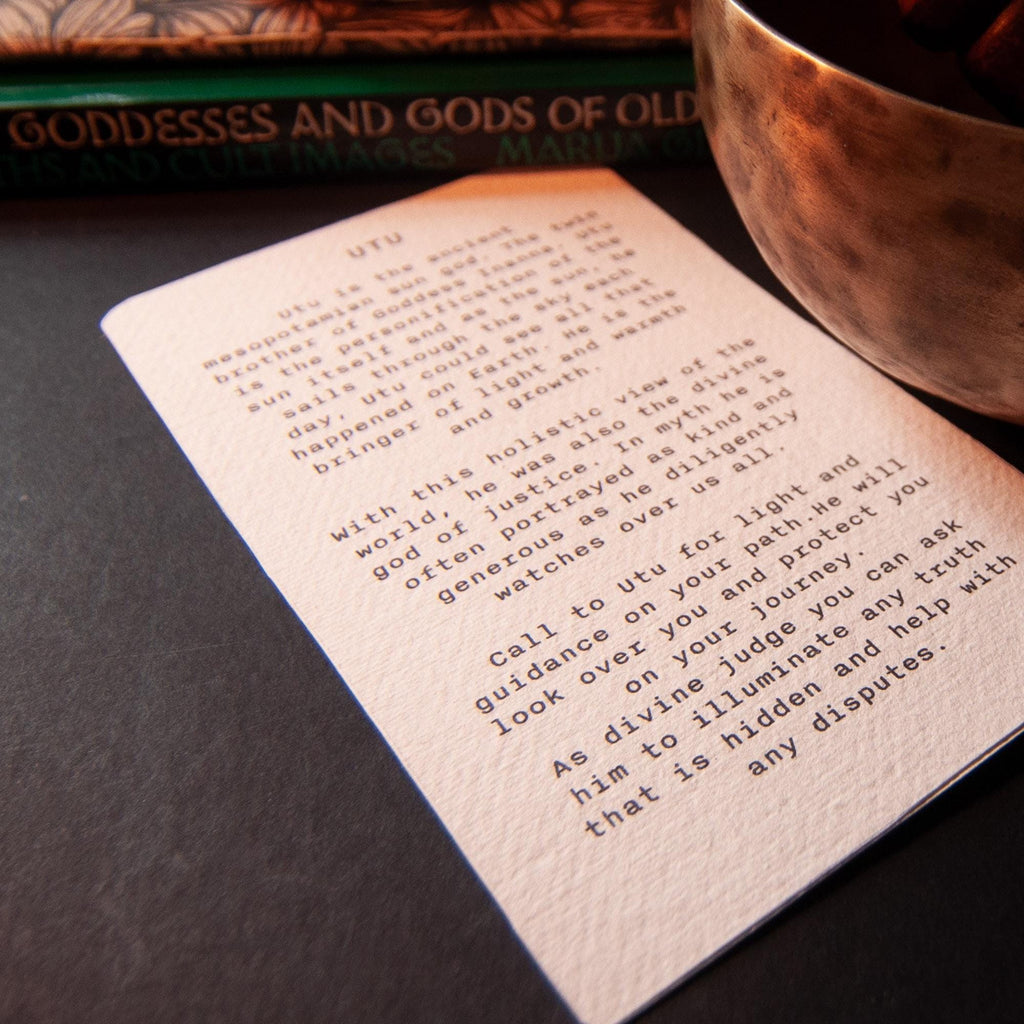 GODDESSES AND GODS OF OLD
THS AND CULT IMAGES MARIJA GI
UTU
Utu is the ancient
mesopotamian sun god. The twin
brother of Goddess Inanna, Utu
is the personification of the
sun itself and as the sun, he
sails through the sky each
day, Utu could see all that
happened on Earth. He is the
bringer of light and warmth
and growth.
With this holistic view of the
world, he was also the divine
god of justice. In myth he is
often portrayed as kind and
generous as he diligently
watches over us all.
Call to Utu for light and
guidance on your path.He will
look over you and protect you
on your journey.
As divine judge you can ask
him to illuminate any truth
that is hidden and help with
any disputes.